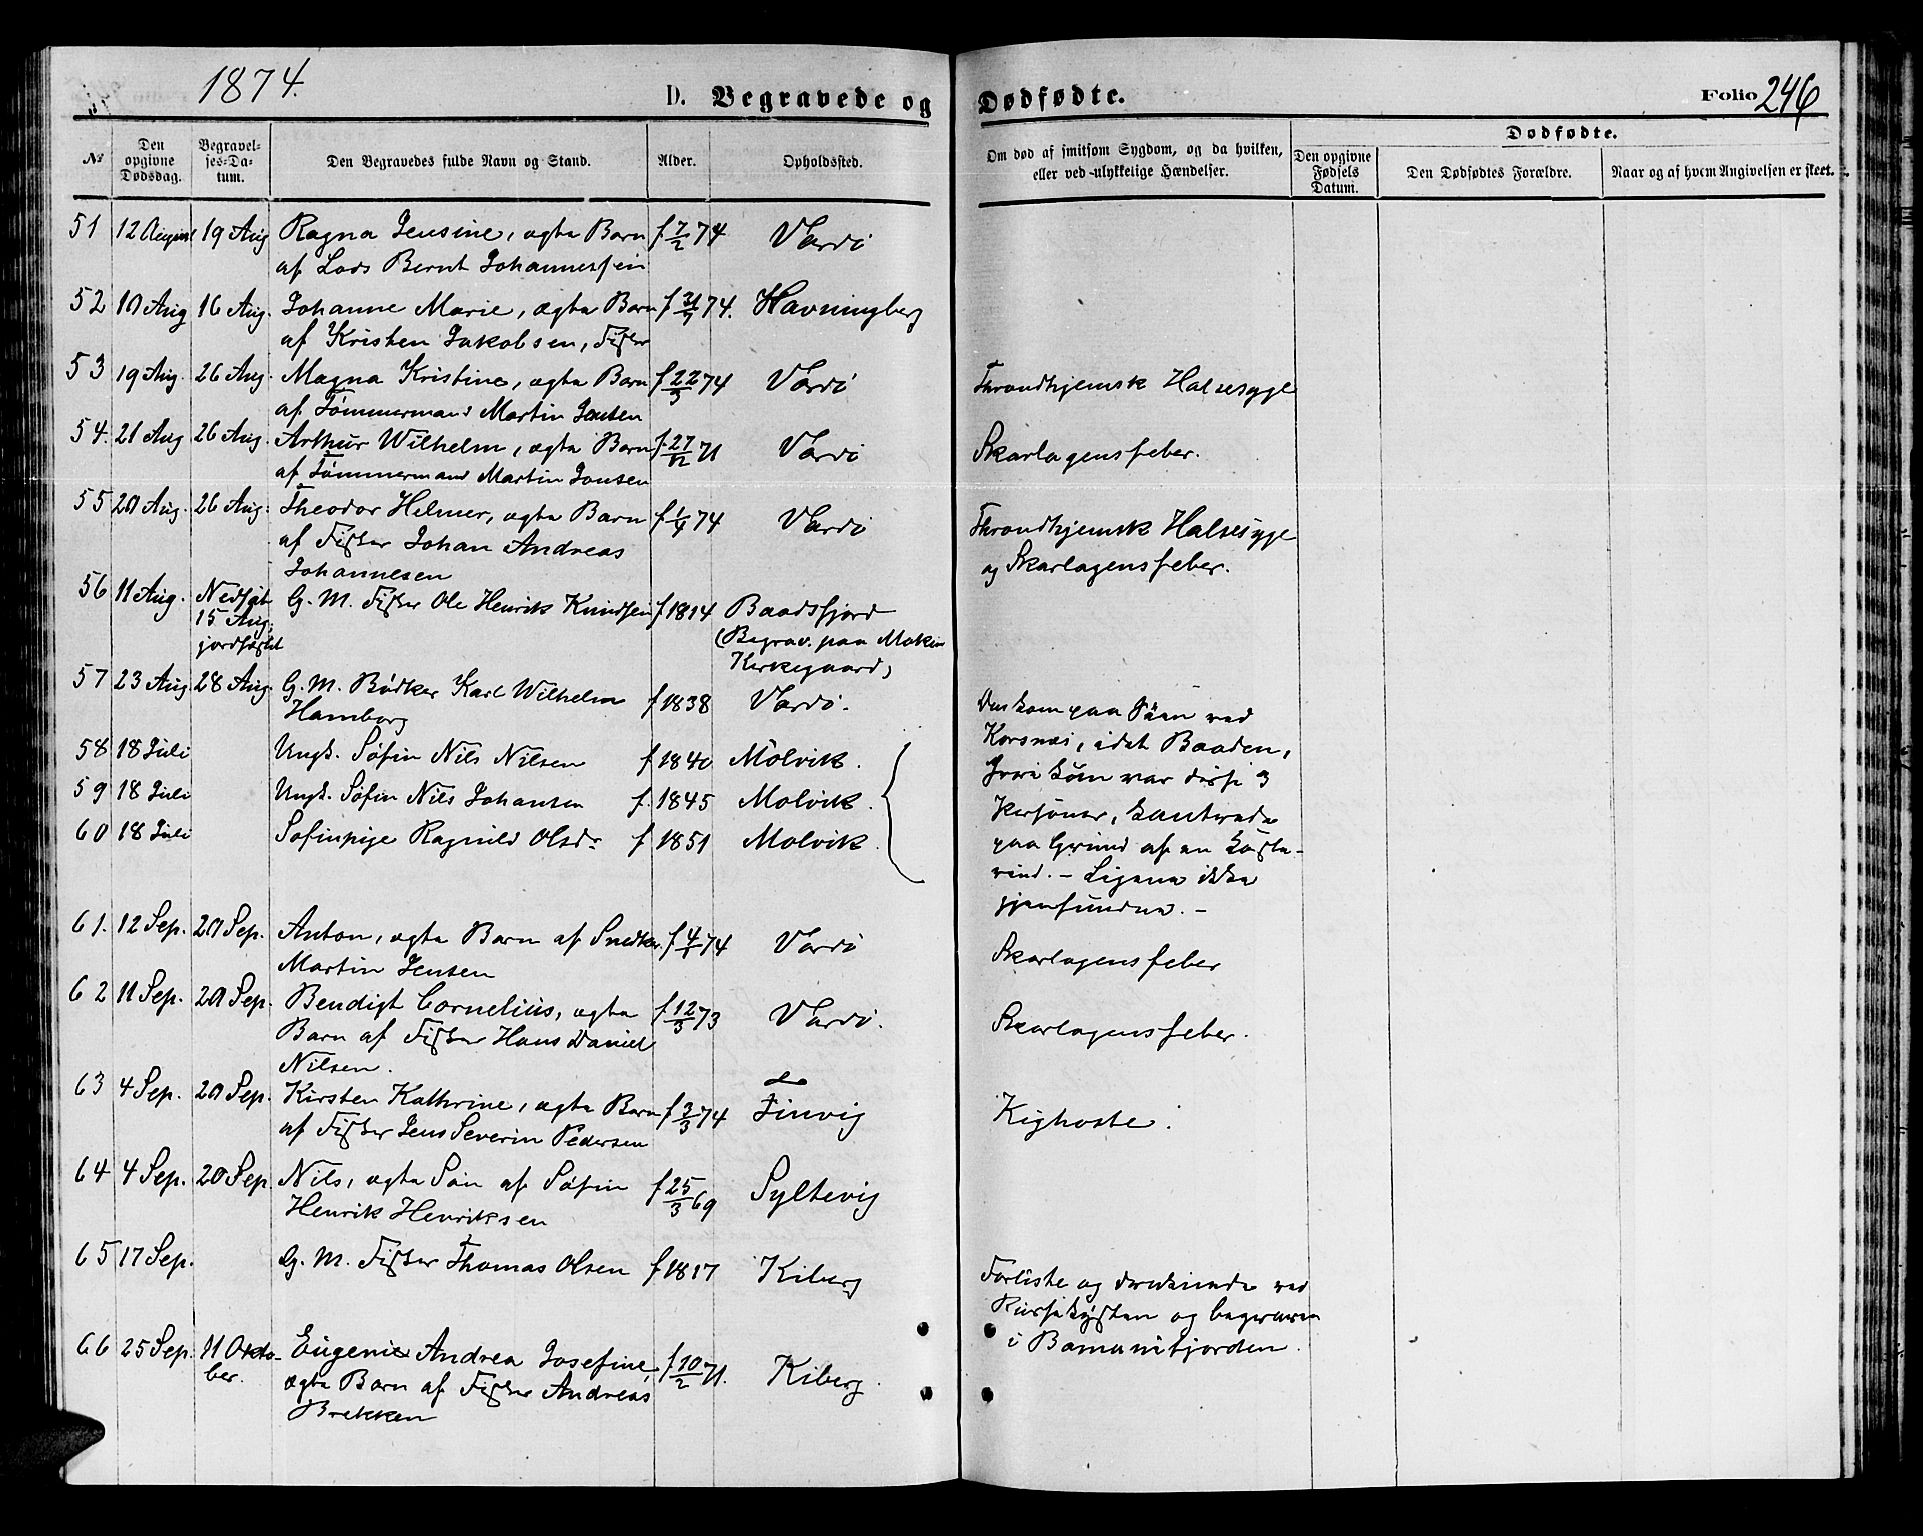 1874.
D. Begravede og Dødfødte.
Folio 246
Nº
Den opgivne Dødsdag.
Begravelses-Datum.
Den Begravedes fulde Navn og Stand.
Alder.
Opholdssted.
Om død af smitsom Sygdom, og da hvilken, eller ved ulykkelige Hændelser.
Dødfødte.
Den opgivne Fødsels Datum.
Den Dødfødtes Forældre.
Naar og af hvem Angivelsen er skeet.
51 12 August 19 Aug Ragna Jensine, ægte Barn f 7/2 74 Vardø
af Lods Bernt Johannessen
52 10 Aug 16 Aug. Johanne Marie, ægte Barn f 31/7 74. Havningberg
af Kristen Jakobsen, Fisker
53 19 Aug. 26 Aug. Magna Kristine, ægte Barn f 22/3 74 Vardø Throndhjemsk Halsesyge
af Tømmermand Martin Jensen
54. 21 Aug 26 Aug. Arthur Wilhelm, ægte Barn f. 27/12 71 Vardø Skarlagensfeber.
af Tømmermand Martin Jensen
55 20 Aug. 26 Aug. Theodor Helmer, ægte Barn f 1/4 74 Vardø Throndhjemsk Halsesyge
af Fisker Johan Andreas og Skarlagensfeber.
Johannesen
56 11 Aug. Nedsat G. M. Fisker Ole Henrik Knudsen f 1814 Baadsfjord
15 Aug; (Begrav. paa Makeur
jordfæstet Kirkegaard)
57 23 Aug. 28 Aug. G. M. Bødker Karl Wilhelm f 1838 Vardø.
Hamborg
58 18 Juli Ungk. Søfin Nils Nilsen f 1840 Molvik.
59 18 Juli Ungk. Søfin Nils Johansen f. 1845 Molvik.
60 18 Juli Søfinpige Ragnild Olsdr f 1851 Molvik.
Omkom paa Søen ved
Korsnæs, idet Baaden,
hvori som var disse 3
Personer, kantrede
paa Grund af en Kaste-
vind. - Ligene ikke
gjenfundne. -
61. 12 Sep. 20 Sep. Anton, ægte Barn af Snedker f 4/1 74 Vardø Skarlagensfeber
Martin Jensen
62 11 Sep. 20 Sep. Bendigt Cornelius, ægte f 12/3 73 Vardø. Skarlagensfeber.
Barn af Fisker Hans Daniel
Nilsen.
63 4 Sep. 20 Sep. Kirsten Kathrine, ægte Barn f 3/3 74 Finvig Kighoste.
af Fisker Jens Severin Pedersen
64 4 Sep. 20 Sep. Nils, ægte Søn af Søfin f 25/3 69 Syltevig
Henrik Henriksen
65 17 Sep. G. M. Fisker Thomas Olsen f 1817 Kiberg
Forliste og druknede ved
Russekysten og begraven
i Bomanifjorden.
66 25 Sep. 11 Okto- Eugenie Andrea Josefine, f 10/2 71. Kiberg.
ber. ægte Barn af Fisker Andreas
Brekken